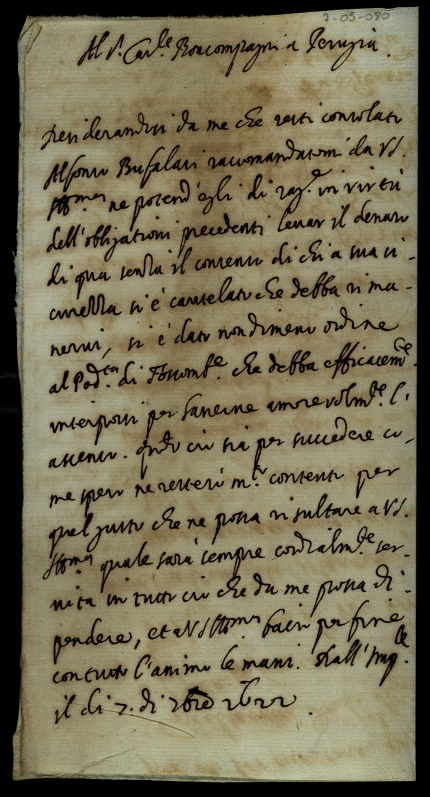 7-05-080
Al S.r Car.le Boncompagni a Perugia.
Desiderandosi da me che resti consolato
Alfonso Bufalari raccomandatomi da VS.
Ill.ma ne potend'egli di rag.e in virtù
dell'obligationi precedenti levar il denaro
di qua senza il consenso di chi a sua si-
curezza si è cautelato che debba rima-
nervi, si è dato nondimeno ordine
al Pod.tà di Fossomb.e che debba efficacem.te
interporsi per haverne amorevolm.te l'
assenso. quando ciò sia per succedere co-
me spero ne resterò m.to contento per
quel gusto che ne possa risultare a VS.
Ill.ma quale sarà sempre cordialm.te ser-
vita in tutto ciò che da me possa di-
pendere, et a VS Ill.ma bacio per fine
con tutto l'animo le mani. Dall'Imp.le
il di 7. di 2622